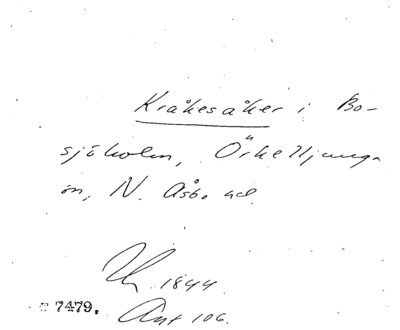 Kråkesåker i Bo-
sjöholm, Örkelljunga
sn, N. Åsbo hd
1844.
7479. Ant 106.